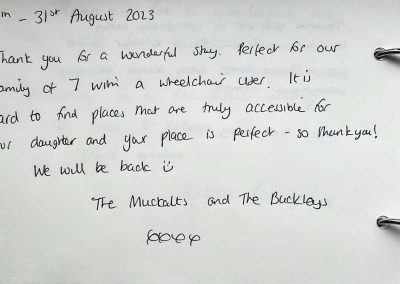 - 31st August 2023
Thank you for a wonderful stay. Perfect for our
family of 7 with a wheelchair user. It is
hard to find places that are truly accessible for
our daughter and your place is perfect - so thank you!
We will be back ☺
The Muckalts and The Buckleys